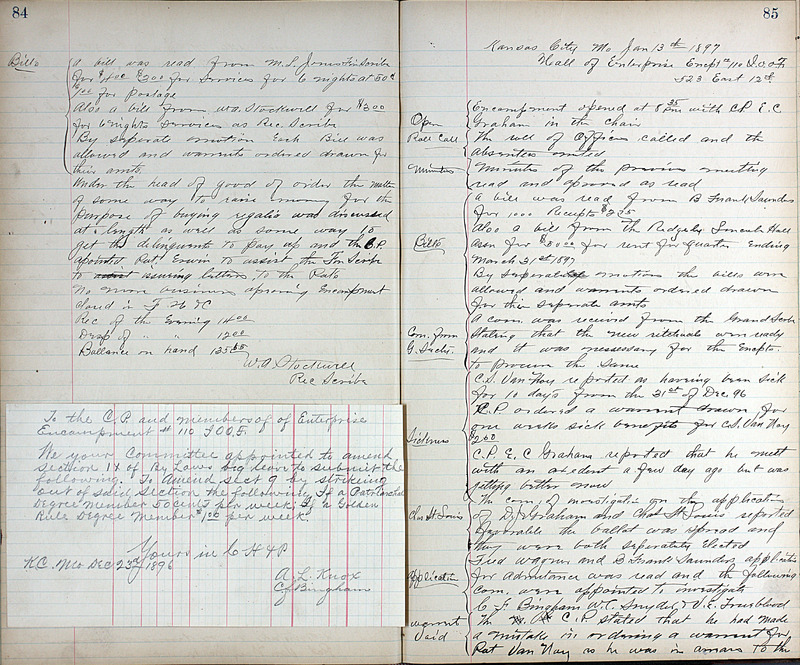 84
Bills
A bill was read from M.S. Jones Fin Scribe
for $4.00 $3.00 for services for 6 nights at 50¢
$1.00 for postage
Also a bill from W.A. Stockwell for $3.00
for 6 nights services as Rec. Scribe
By seperate motion Each Bill was
allowed and warrants ordered drawn for
their amts.
Under the head of good of order the matter
of some way to raise money for the
purpose of buying regalia was discussed
at length as well as some way to
get the delinquents to pay up and the C.P.
apointed Pat. Erwin to assist the Fin Scribe
to assist issuing letters to the Pats
No more business apearing Encampment
closed in F H & C
Rec of the Evening 14 00
Disp of " " 12 00
Ballance on hand
W.A. Stockwell
Rec Scribe
To the C.P. and members of of Enterprise
Encampment # 110 I.O.O.F.
We your Committee appointed to amend
Section 14 of By Laws beg leave to submit the
following. To Amend Sect 9 by striking
out of said section the following If a Patriarchal
Degree member 50 cents per week, If a Golden
Rule Degree Member $1.00 per week.
Yours in F H & P
K.C. Mo Dec 23rd 1896
A. L. Knox
C.F. Bingham
85
Kansas City Mo Jan 13th 1897
Hall of Enterprise Encpt # 110 I.O.O.F.
523 East 12th
Open
Encampment opened at 8 35 P.M. with C.P. E.C
Graham in the chair
Roll Call
The roll of Officers called and the
absentees noted
Minutes
Minutes of the previous meeting
read and aproved as read
Bills
A bill was read from B Frank Saunders
for 1000 Recepts
Also a bill from the Ridgely Lincoln Hall
Assn for for rent for quarter Ending
March 31st 1897
By seperate motions the bills were
allowed and warrants ordered drawn
for their seperate amts
Com. from
G. Scribe.
A com. was received from the Grand Scribe
stating that the new retituals were ready
and it was nessessary for the Encpts.
to procure the same
Sickness
C.S. Van Noy reported as having been sick
for 10 days from the 31st of Dec. 96
C.P ordered a warrant drawn for
one weeks sick benefits for C.S. Van Noy
$2.00
C.P. E. C Graham reported that he met
with an accident a few day ago but was
getting better now
Chas St. Louis
The com. of investigation on the application
of D.J. Graham and Chas St. Louis reported
favorable the ballot was spread and
they were both seperately Elected
Application
Fred Wagner and B Frank Saunders application
for admitance was read and the following
com. were appointed to investigate
C. F. Bingham W.C. Snyder & V.E. Trueblood
Warrant
Void
The C.P. stated that he had made
a mistake in ordering a warrant for
Pat Van Noy as he was in arrears to the